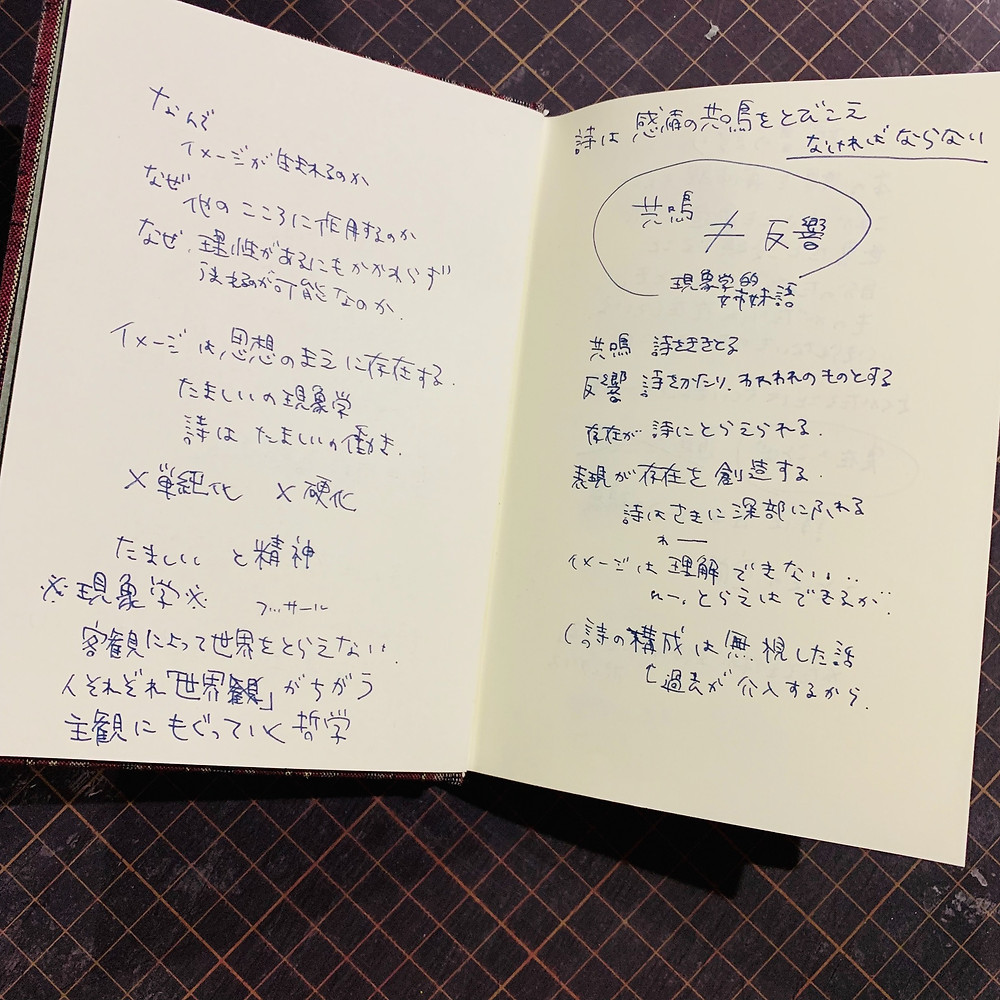 なんで
イメージが生まれるのか
なぜ
他のこころに作用するのか
なぜ、理性があるにもかかわらず
うまれるのが可能なのか.
イメージは思想のまえに存在する.
たましいの現象学
詩はたましいの働き.
×単純化 ×硬化
たましい と精神
※現象学※ フッサール
客観によって世界をとらえない.
人それぞれ「世界観」がちがう
主観にもぐっていく哲学
詩は感情の共鳴をとびこえ
なければならない
共鳴 ≠ 反響
現象学的
姉妹語
共鳴 詩をききとる
反響 詩をかたり、われわれのものとする
存在が詩にとらえられる.
表現が存在を創造する.
詩はさきに深部にふれる
イメージは理解できない...
とらえはできるが.
詩の構成は無視した話
過去が介入するから.